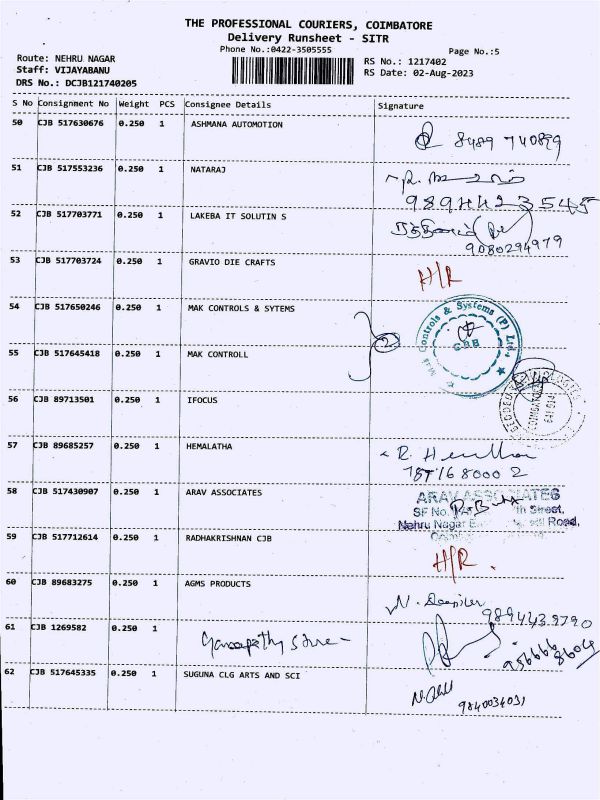 THE PROFESSIONAL COURIERS, COIMBATORE
Delivery Runsheet - SITR
Phone No.:0422-3505555
Page No.:5
Route: NEHRU NAGAR
Staff: VIJAYABANU
DRS No.: DCJB121740205
RS No.: 1217402
RS Date: 02-Aug-2023
S No Consignment No Weight PCS Consignee Details Signature
50 CJB 517630676 0.250 1 ASHMANA AUTOMOTION
8489 740899
51 CJB 517553236 0.250 1 NATARAJ
9894423545
52 CJB 517703771 0.250 1 LAKEBA IT SOLUTIN S
9080294979
53 CJB 517703724 0.250 1 GRAVIO DIE CRAFTS
H/R
54 CJB 517650246 0.250 1 MAK CONTROLS & SYTEMS
2
Mak Controls & Systems (P) Ltd.
CBE
55 CJB 517645418 0.250 1 MAK CONTROLL
56 CJB 89713501 0.250 1 IFOCUS
57 CJB 89685257 0.250 1 HEMALATHA
R.
58 CJB 517430907 0.250 1 ARAV ASSOCIATES
ARAV ASSOCIATES
SF No. th Street,
Nehru Nagar Road,
59 CJB 517712614 0.250 1 RADHAKRISHNAN CJB
H/R.
60 CJB 89683275 0.250 1 AGMS PRODUCTS
9894439790
61 CJB 1269582 0.250 1
62 CJB 517645335 0.250 1 SUGUNA CLG ARTS AND SCI
9840034031